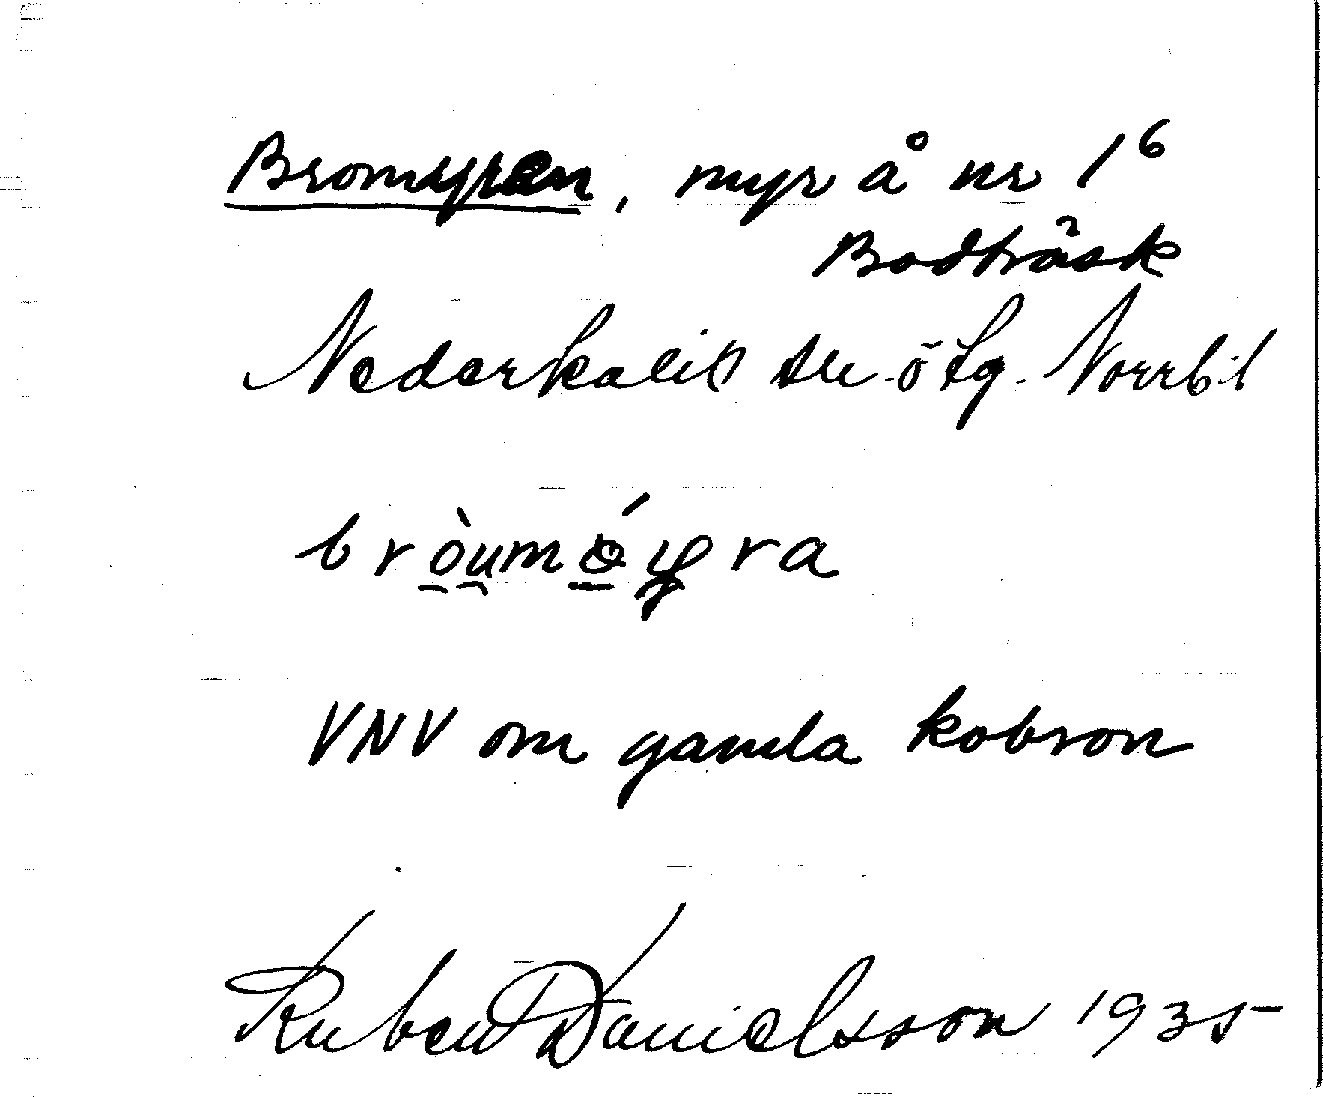 Bromyran, myr å nr 1⁶
Bodträsk
Nederkalix tle. ötg. Norrb. l
VNV om gamla kobron
Ruben Danielsson 1935